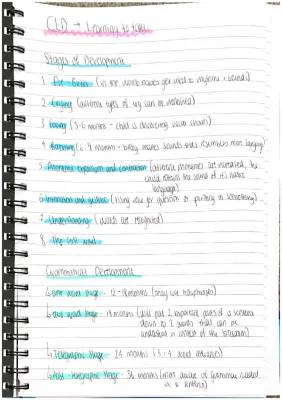 CLD → Learning to talk
Stages of Development
1 Pre-Birth (in the womb
2 Crying (different types of cry can be
3 Cooing (3-6 months - child is discovering vocal chords)
4 Babbling (6-9 months - baby makes sounds that resembles more language)
5 Phonemic expansion and contraction (different phonemes are increased, the
child retains the sound of its native
language)
6 Intonation and gesture (rising tone for question or pointing to something)
7 Understanding (words are recognised)
8 The first word
Grammatical Development
↳ One word stage - 12-18 months (may use holophrases)
↳ Two word stage - 18 months (will put 2 important parts of a sentence
down to 2 words that can be
understood in context of the situation)
↳ Telegraphic Stage - 24 months (3-4 word
↳ Post-telegraphic Stage - 36 months (more aware of grammar needed
in a sentence)